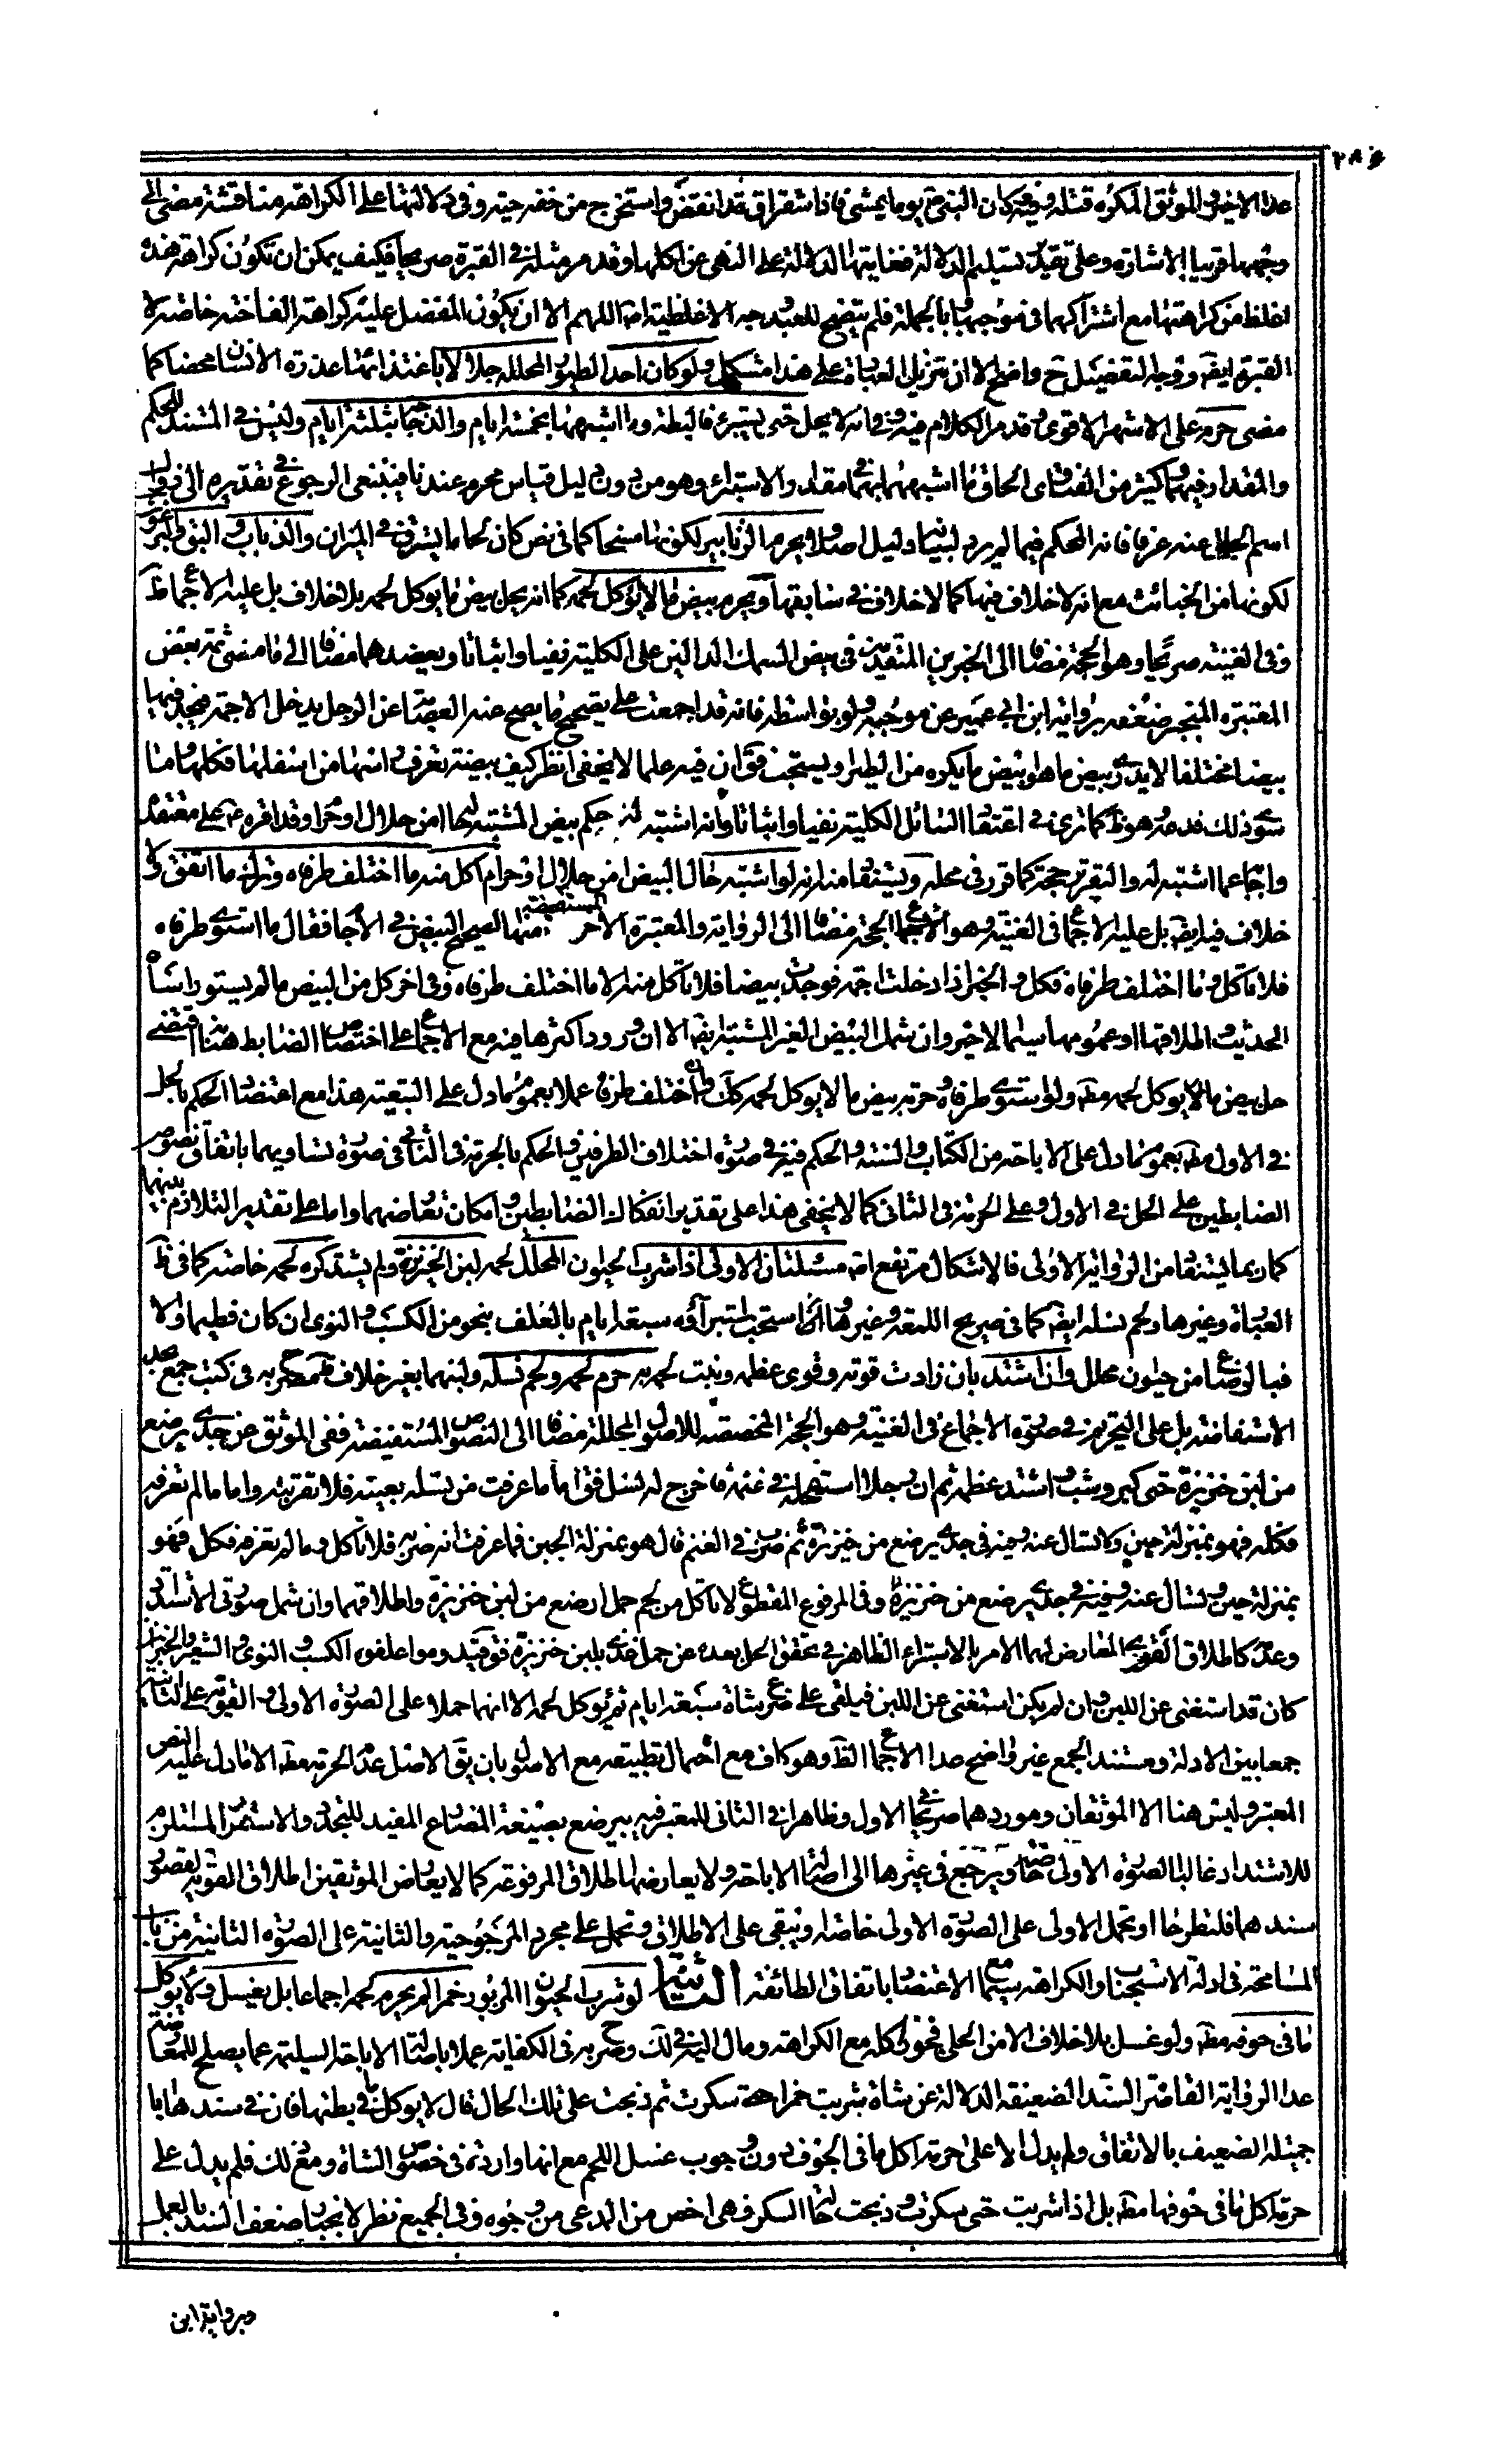 ٢٨٤
عدا الاخير الموثق المكره قتله وفيه كان النبي ص يوما يمشي فاذا شقراق قد انقض واستخرج من خفه حية وفي دلالتها على الكراهة مناقشة مضى الى
وجهها قريبا الاشارة وعلى تقدير تسليم الدلالة فغايتها الدلالة على النهي عن اكلها وقد مر مثله في القبرة صريحا فكيف يمكن ان تكون كراهة هذه
اغلظ من كراهتها مع اشتراكهما في موجبها بالجملة فلم يتضح للعبد وجه الاغلظية اه اللهم الا ان يكون المفضل عليه كراهة الفاختة خاصة لا
القبرة ايضه ووجه التفضيل ح واضح الا ان تنزيل العبارة على هذا مشكل ولو كان احد الطيور المحللة جلالا باغتذائها عذرة الانسان محضا كما
مضى حرم على الاشهر الاقوى وقد مر الكلام فيه وفي انه لا يحل حتى يستبرء فالبطة وما اشبهها بخمسة ايام والدجاجة بثلثة ايام وليس في المستند للحكم
والمقدار فيهما كثير من الفتاوى الحاق ما اشبههما بهما في مقدار الاستبراء وهو من دون دليل قياس محرم عندنا فينبغي الرجوع في تقديره الى زوال
اسم الجلل عنه عرفا فانه المحكم فيما لم يرد لبيانه دليل اصلا ويحرم الزنابير لكونها مسخا كما في نص كان لحاما يسرق في الميزان والذباب والبق والبرغوث
لكونها من الخبائث مع انه لا خلاف فيها كما لا خلاف في سابقها ويحرم بيض ما لا يؤكل لحمه كما انه يحل بيض ما يؤكل لحمه بلا خلاف بل عليه الاجماع ظ
وفي الغنية صريحا وهو الحجة مضافا الى الخبرين المتقدمين في بيض السمك الدالين على الكلية نفيا واثباتا ويعضدهما مضافا الى ما مضى ثمة بعض
المعتبرة المنجبر ضعفه برواية ابن ابي عمير عن موجبه ولو بواسطة فانه قد اجمعت على تصحيح ما يصح عنه العصابة عن الرجل يدخل الاجمة فيجد فيها
بيضا مختلفا لا يدري بيض ما هو ابيض ما يكره من الطير او يستحب فق ان فيه علما لا يخفى انظر كيف بيضة تعرف راسها من اسفلها فكلها وما
سوى ذلك فدعه وهو ظ كما ترى في اعتقاد السائل الكلية نفيا واثباتا وانه اشتبه له حكم بيض المشتبه لحما امن حلال او حرام وقد اقره ع على معتقده
واجابه عما اشتبه له والتقرير حجة كما قرر في محله ويستفاد منه انه لو اشتبه حال البيض امن حلال او حرام اكل منه ما اختلف طرفاه وترك ما اتفق ولا
خلاف فيه ايضه بل عليه الاجماع في الغنية وهو الحجة مضافا الى الرواية والمعتبرة الاخر المستفيضة منها الصحيح البيض في الاجام فقال ما استوى طرفاه
فلا تاكل وما اختلف طرفاه فكل والخبر اذا دخلت اجمة فوجدت بيضا فلا تاكل منه الا ما اختلف طرفاه وفي اخر كل من البيض ما لم يستو راساه
الحديث واطلاقها او عمومها سيما الاخير وان شمل البيض الغير المشتبه ايضه الا ان ورود اكثرها فيه مع الاجماع على اختصاص الضابط هنا به اقتضى
حل بيض ما يؤكل لحمه مطه ولو استوى طرفاه وحرمة بيض ما لا يؤكل لحمه كك وان اختلف طرفاه عملا بعموم ما دل على التبعية هذا مع اعتضاد الحكم بالحل
في الاول مطه بعموم ما دل على الاباحة من الكتاب والسنة والحكم فيه في صورة اختلاف الطرفين والحكم بالحرمة في الثاني في صورة تساويهما باتفاق نصوص
الضابطين على الحل في الاول وعلى الحرمة في الثاني كما لا يخفى هذا على تقدير انفكاك الضابطين وامكان تعارضهما واما على تقدير التلازم بينهما
كما ربما يستفاد من الرواية الاولى فالاشكال مرتفع اه مسئلتان الاولى اذا شرب الحيوان المحلل لحمه لبن الخنزيرة ولم يشتد كره لحمه خاصة كما في ظ
العبارة وغيرها ولحم نسله ايضه كما في صريح اللمعة وغيرها استحب استبراؤه سبعة ايام بالعلف بنحو من الكسب والنوى ان كان فطيما والا
فبالرضاع من حيوان محلل وان اشتد بان زادت قوته وقوى عظمه ونبت لحمه به حرم لحمه ولحم نسله ولبنهما بغير خلاف ظ مصرح به في كتب جمع بحد
الاستفاضة بل على التحريم في صورته الاجماع في الغنية وهو الحجة المخصصة للاصول المحللة مضافا الى النصوص المستفيضة ففي الموثق عن جدي يرضع
من لبن خنزيرة حتى كبر وشب واشتد عظمه ثم ان رجلا استفحله في غنمه فاخرج له نسل فق اما ما عرفت من نسله بعينه فلا تقربنه واما ما لم تعرفه
فكله فهو بمنزلة الجبن ولا تسال عنه وفيه في جدي يرضع من خنزيرة ثم ضرب في الغنم قال هو بمنزلة الجبن فما عرفت انه ضربه فلا تاكل وما لم تعرفه فكل فهو
بمنزلة جبن ولا تسال عنه وفيه في جدي يرضع من خنزيرة وفي المرفوع المقطوع لا تاكل من لحم حمل ارضع من لبن خنزيرة واطلاقهما وان شمل صورتي الاشتداد
وعدمه كاطلاق القوي المعارض لهما الامر بالاستبراء الظاهر في تحقق الحل بعده عن حمل غذي بلبن خنزيرة فق قيدوه واعلفوه الكسب والنوى والشعير والخبز ان
كان قد استغنى عن اللبن وان لم يكن استغنى عن اللبن فيلقى على ضرع شاة سبعة ايام ثم يؤكل لحمه الا انهما حملا على الصورة الاولى والقوي على الثانية
جمعا بين الادلة ومستند الجمع غير واضح عدا الاجماع الظ وهو كاف مع احتمال تطبيقه مع الاصول بان يق الاصل عدم الحرمة مطه الا ما دل عليه النص
المعتبر وليس هنا الا الموثقان وموردهما صريحا في الاول وظاهرا في الثاني المعبر فيه بيرضع بصيغة المضارع المفيد للتجدد والاستمرار المستلزم
للاشتداد غالبا الصورة الاولى خاصة ويرجع في غيرها الى اصالة الاباحة ولا يعارضها اطلاق المرفوعة كما لا يعارض الموثقين اطلاق القوية لقصور
سندهما فلتطرحا او تحمل الاولى على الصورة الاولى خاصة او تبقى على الاطلاق وتحمل على مجرد المرجوحية والثانية على الصورة الثانية من باب
المسامحة في ادلة الاستحباب والكراهة سيما مع الاعتضاد باتفاق الطائفة الثانية لو شرب الحيوان المزبور خمرا لم يحرم لحمه اجماعا بل يغسل ولا يؤكل
ما في جوفه مطه ولو غسل بلا خلاف الا من الحلي فجوز اكله مع الكراهة ومال اليه في لك وصرح به في الكفاية عملا باصالة الاباحة السليمة عما يصلح للمعارضة
عدا الرواية القاصرة السند الضعيفة الدلالة عن شاة شربت خمرا حتى سكرت ثم ذبحت على تلك الحال قال لا يؤكل ما في بطنها فان في سندها ابا
جميلة الضعيف بالاتفاق ولم يدل الا على حرمة اكل ما في الجوف دون وجوب غسل اللحم مع انها واردة في خصوص الشاة ومع ذلك فلم يدل على
حرمة اكل ما في جوفها مطه بل اذا شربت حتى سكرت وذبحت حالة السكر فهي اخص من المدعى من وجوه وفي الجميع نظر لانجبار ضعف السند بالعمل
وبرواية ابن